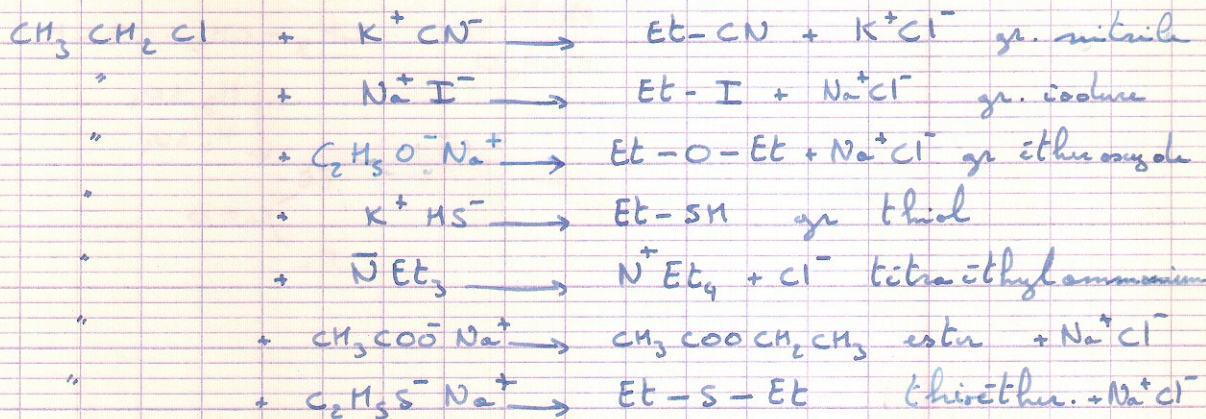 CH₃ CH₂ Cl + K⁺ CN⁻ ⟶ Et-CN + K⁺Cl⁻ gr. nitrile
" + Na⁺ I⁻ ⟶ Et-I + Na⁺Cl⁻ gr. iodure
" + C₂H₅O⁻Na⁺ ⟶ Et-O-Et + Na⁺Cl⁻ gr étheroxyde
" + K⁺ HS⁻ ⟶ Et-SH gr thiol
" + N̄Et₃ ⟶ N⁺Et₄ + Cl⁻ tétraéthylammonium
" + CH₃COO⁻Na⁺ ⟶ CH₃COOCH₂CH₃ ester + Na⁺Cl⁻
" + C₂H₅S⁻Na⁺ ⟶ Et-S-Et thioéther. + Na⁺Cl⁻